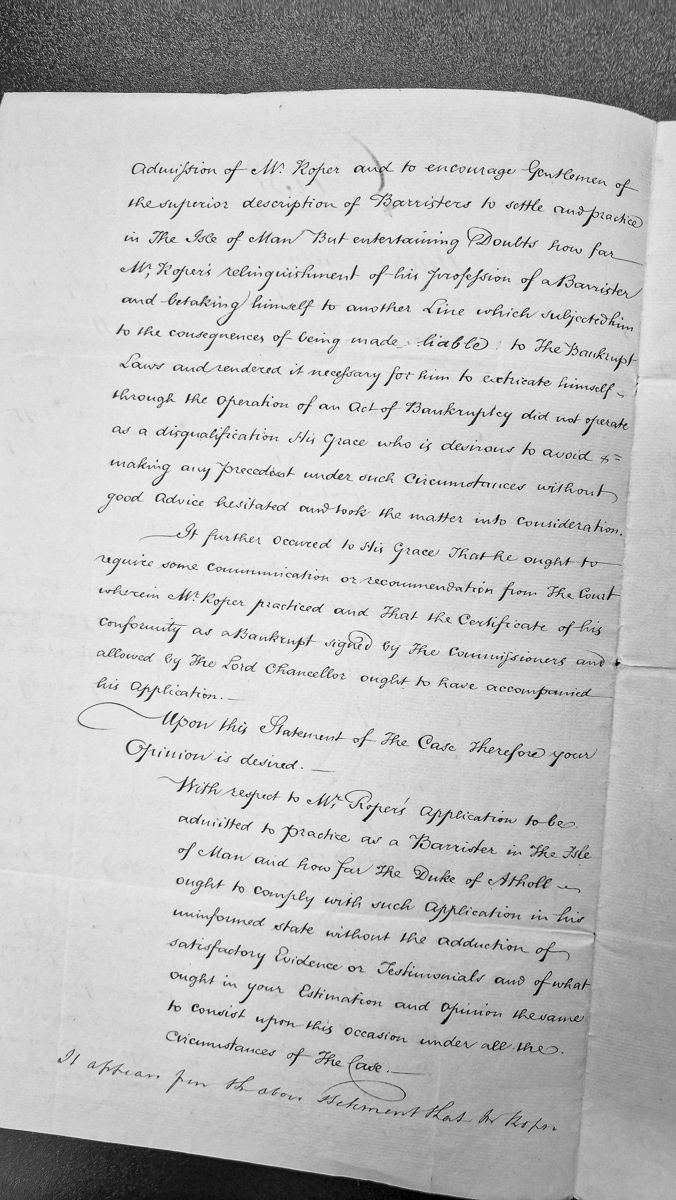 Admission of Mr. Roper and to encourage Gentlemen of
the superior description of Barristers to settle and practice
in The Isle of Man But entertaining Doubts how far
Mr. Roper's relinquishment of his profession of a Barrister
and betaking himself to another Line which subjected him
to the consequences of being made liable to The Bankrupt
Laws and rendered it necessary for him to extricate himself
through the operation of an Act of Bankruptcy did not operate
as a disqualification His Grace who is desirous to avoid &c
making any precedent under such Circumstances without
good Advice hesitated and took the matter into consideration.
It further occured to His Grace That he ought to
require some communication or recommendation from The Court
wherein Mr. Roper practiced and That the Certificate of his
conformity as a Bankrupt signed by The Commissioners and
allowed by The Lord Chancellor ought to have accompanied
his Application.—
Upon this Statement of The Case Therefore your
Opinion is desired.—
With respect to Mr. Roper's Application to be
admitted to practice as a Barrister in The Isle
of Man and how far The Duke of Atholl
ought to comply with such Application in his
uninformed state without the adduction of
satisfactory Evidence or Testimonials and of what
ought in your Estimation and Opinion the same
to consist upon this occasion under all the
Circumstances of The Case.—
It appears from the above Statement that Mr Roper